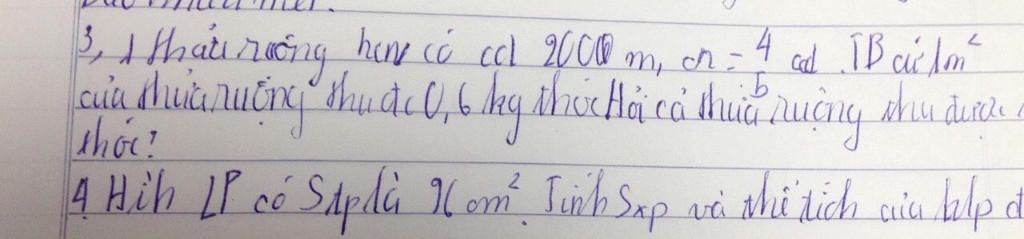 3, 1 thửa ruộng hcn có cd 2000 m, cr = 4/5 cd. TB cứ 1m²
của thửa ruộng thu đc 0,6 kg thóc Hỏi cả thửa ruộng thu được
thóc?
4, Hình LP có Stp là 96 cm². Tính Sxp và thể tích của hlp đ